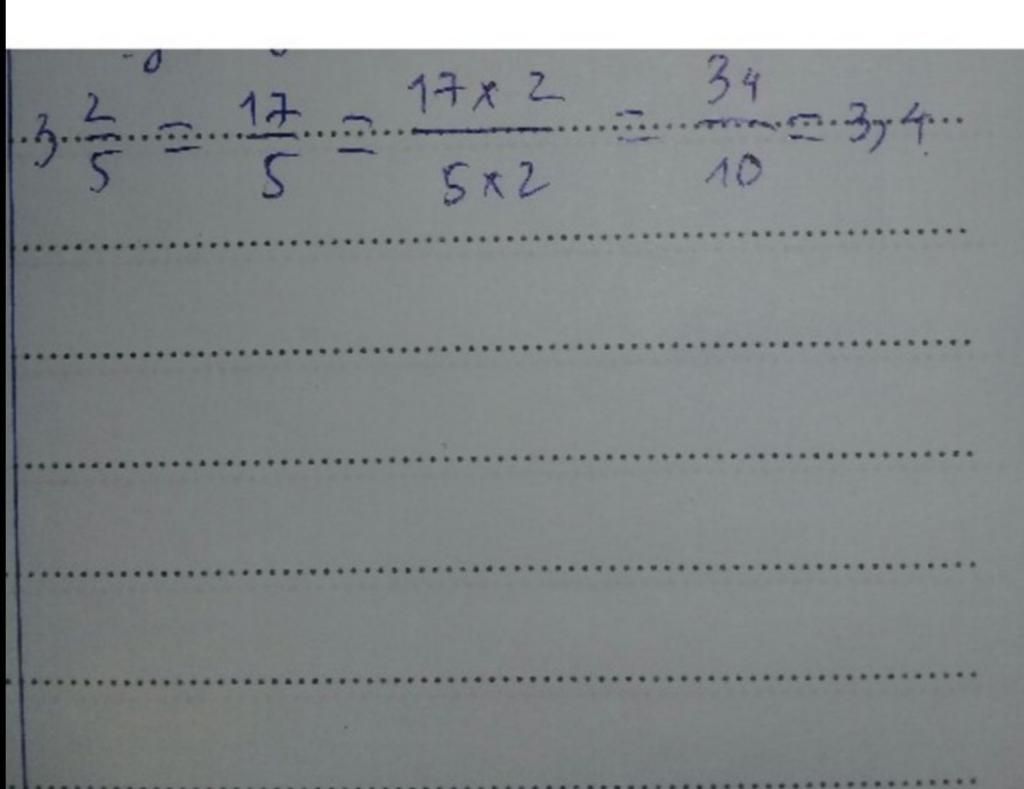 3 2/5 = 17/5 = 17 x 2 / 5 x 2 = 34/10 = 3,4